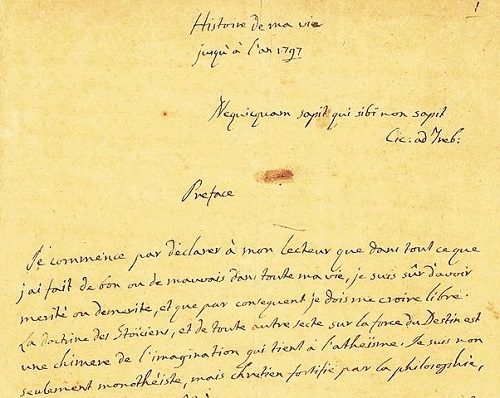 1
Histoire de ma vie
jusqu'à l'an 1797
Nequicquam sapit qui sibi non sapit
Cic: ad Treb:
Preface
Je commence par déclarer à mon lecteur que dans tout ce que
j'ai fait de bon ou de mauvais dans toute ma vie, je suis sûr d'avoir
merité ou demerité, et que par consequent je dois me croire libre.
La doctrine des Stoïciens, et de toute autre secte sur la force du Destin est
une chimere de l'imagination qui tient à l'atheïsme. Je suis non
seulement monothéiste, mais chretien fortifié par la philosophie,